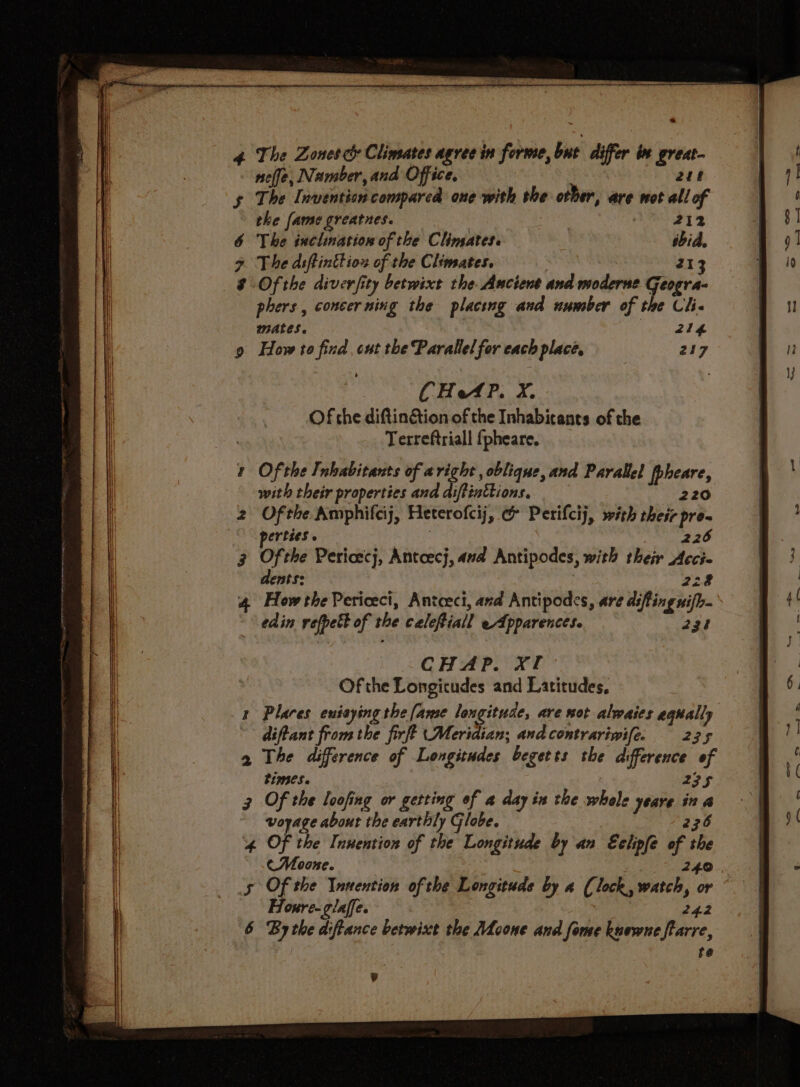 4 The Zones & Climates agree in forme, but differ in great-
neſſe, Number, and Office. 211
5 The Invention compared one with the other, are not all of
the ſame greatnes. 212
6 The inclination of the Climates. ibid.
7 The diſtinction of the Climates. 213
8 Of the diverſity betwixt the Ancient and moderne Geogra-
phers, concerning the placing and number of the Cli-
mates. 214
9 How to find out the Parallel for each place. 217
CHAP. X.
Of the diſtinction of the Inhabitants of the
Terreſtriall ſpheare.
1 Of the Inhabitants of a right, oblique, and Parallel ſpheare,
with their properties and diſtinctions. 220
2 Of the Amphiſcij, Heteroſcij, & Periſcij, with their pro-
perties. 226
3 Of the Periœcj, Antœcj, and Antipodes, with their Acci-
dents: 228
4 How the Periœci, Antœci, and Antipodes, are diſtinguiſh-
ed in reſpect of the cæleſtiall Apparences. 231
CHAP. XI
Of the Longitudes and Latitudes.
1 Places enioying the ſame longitude, are not alwaies equally
diſtant from the firſt Meridian; and contrariwiſe. 235
2 The difference of Longitudes begetts the difference of
times. 235
3 Of the looſing or getting of a day in the whole yeare in a
voyage about the earthly Globe. 236
4 Of the Inuention of the Longitude by an Eclipſe of the
Moone. 240
5 Of the Inuention of the Longitude by a Clock, watch, or
Houre-glaſſe. 242
6 By the diſtance betwixt the Moone and ſome knowne ſtarre,
to